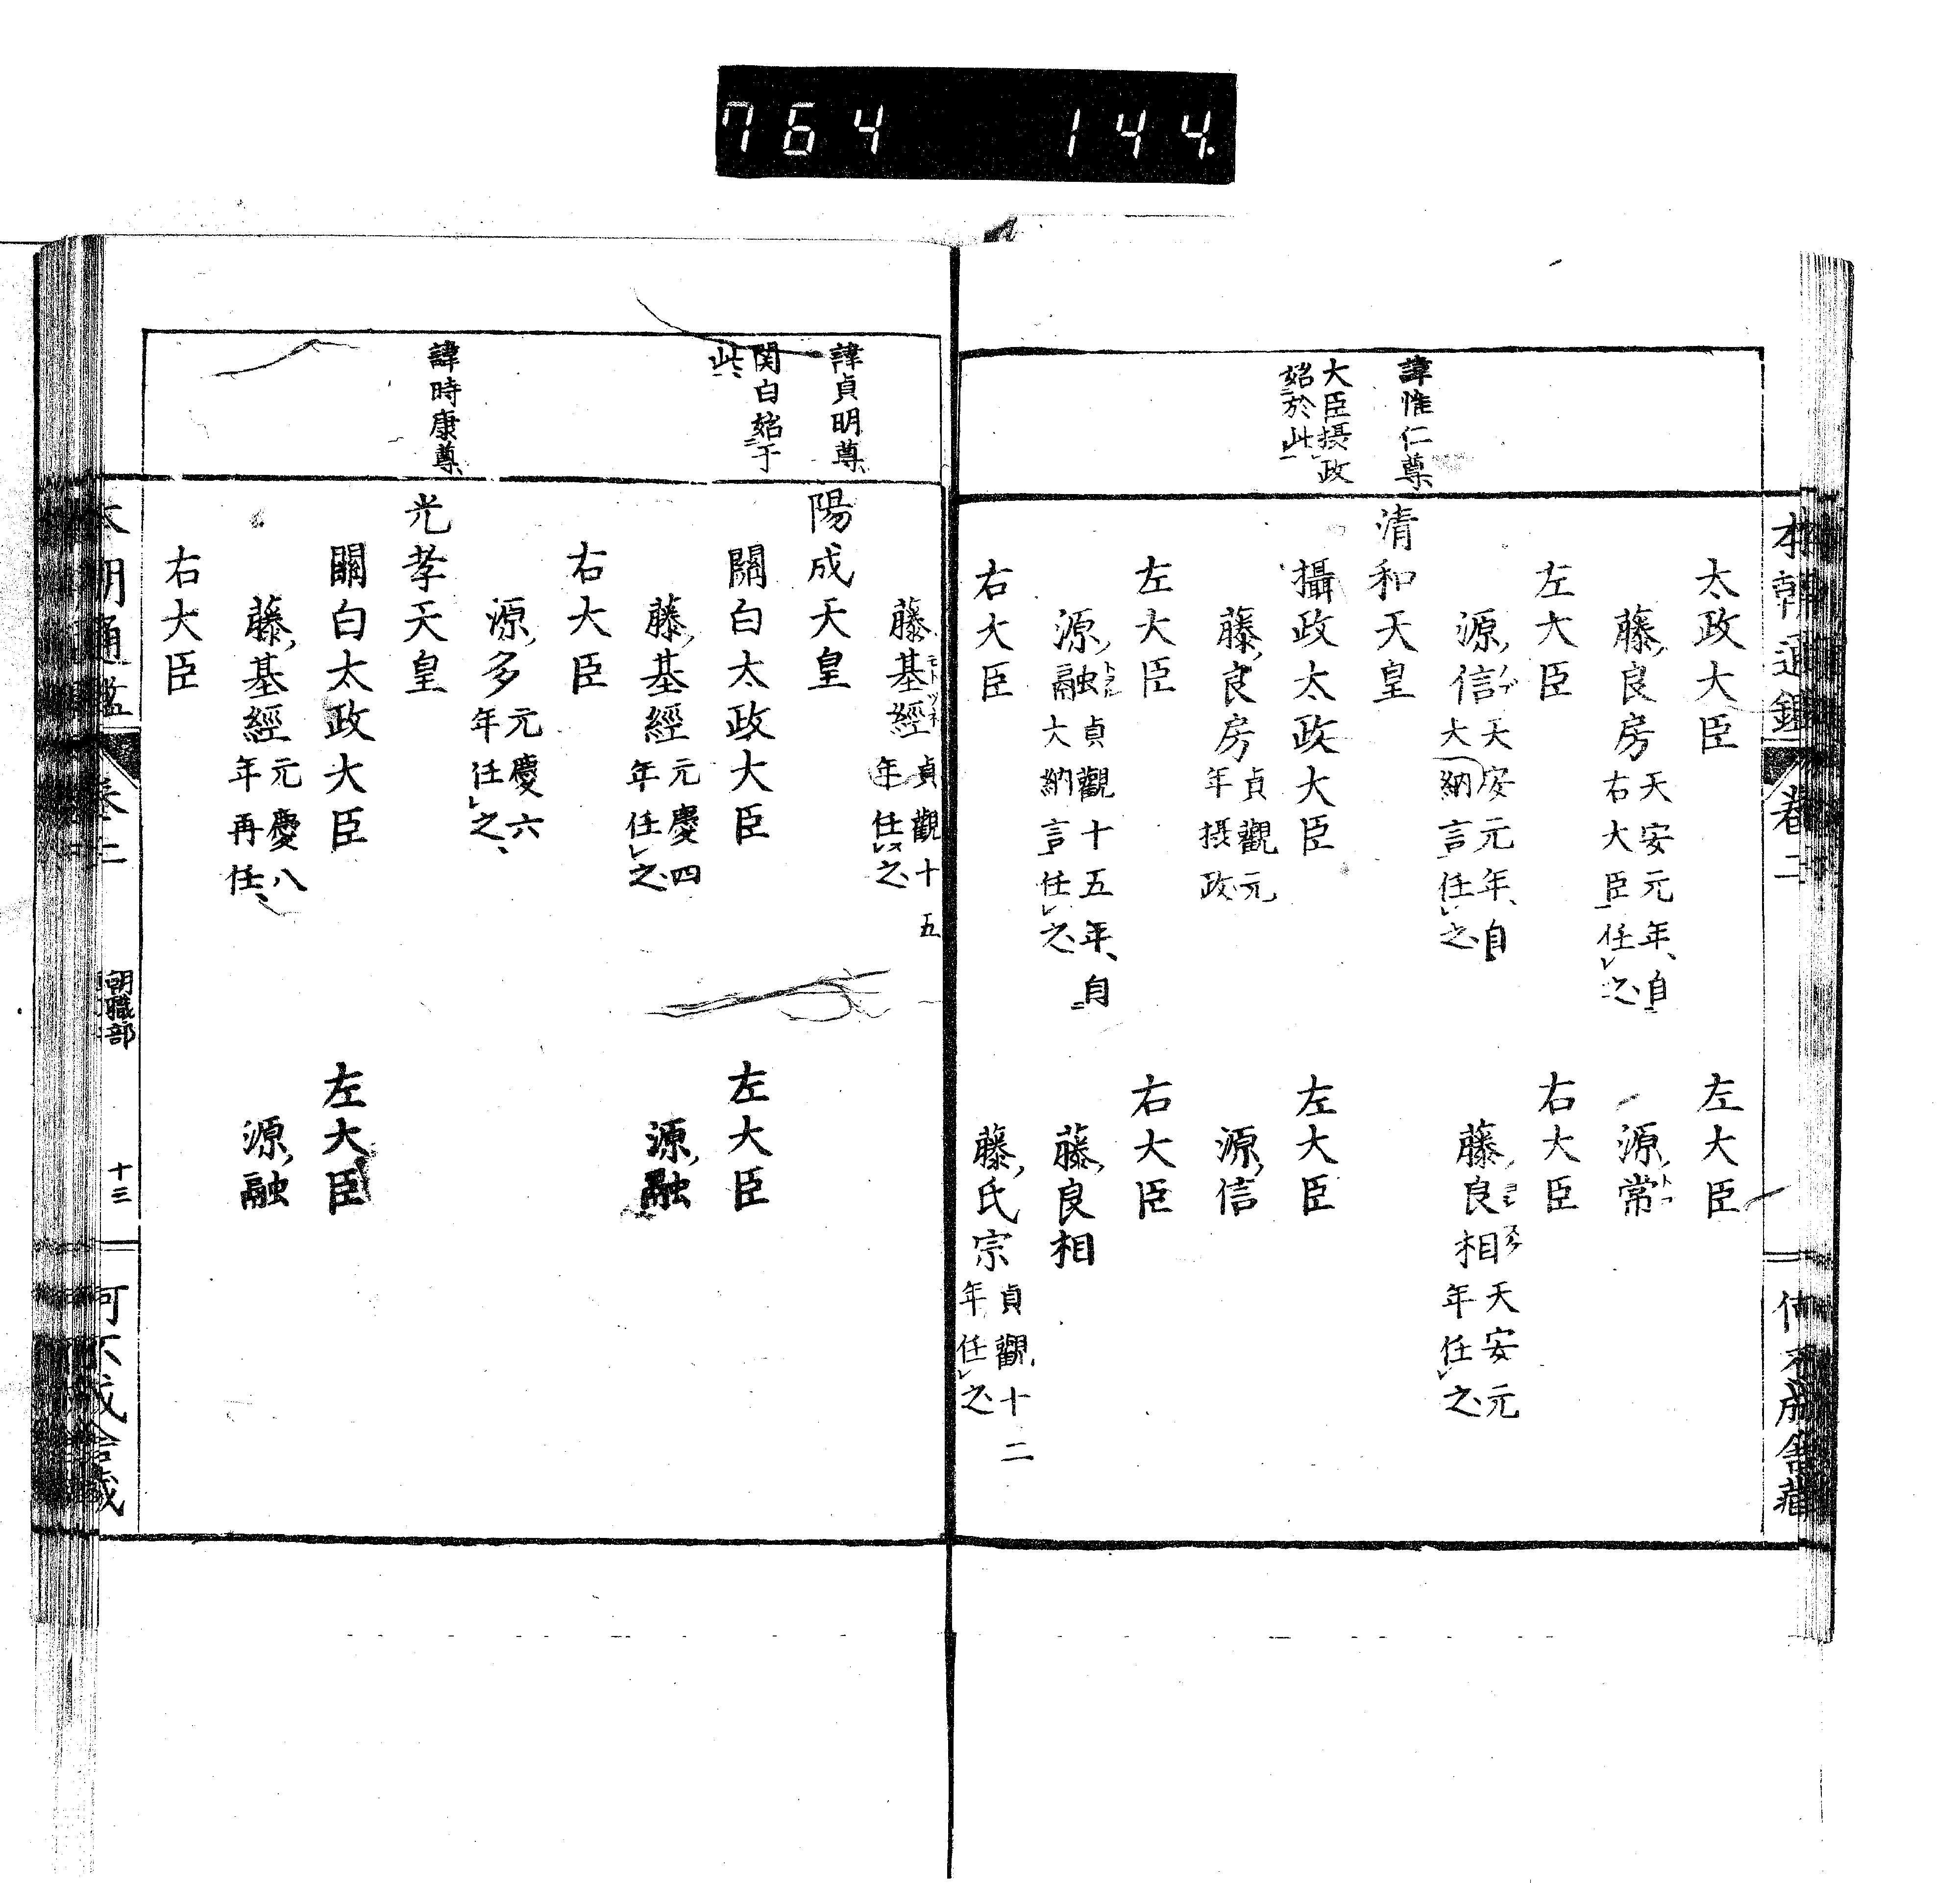 764 144.
太政大臣 左大臣
藤良房 天安元年自右大臣任之 源常
左大臣 右大臣
源信 天安元年自大納言任之 藤良相 天安元年任之
諱惟仁尊
清和天皇
大臣摂政始於此
攝政太政大臣 左大臣
藤良房 貞觀元年摂政 源信
左大臣 右大臣
源融 トヲル 貞觀十五年自大納言任之 藤良相
右大臣 藤氏宗 貞觀十二年任之
藤基經 モトツネ 貞觀十五年任之
諱貞明尊
陽成天皇
関白始于此
關白太政大臣 左大臣
藤基經 元慶四年任之 源融
右大臣
源多 元慶六年任之
諱時康尊
光孝天皇
關白太政大臣 左大臣
藤基經 元慶八年再任 源融
右大臣
本朝通鑑 卷二 朝職部 十三 何不成舍藏